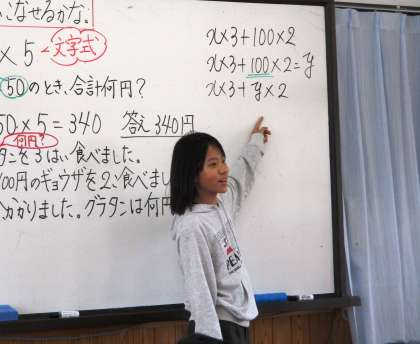 こなせるかな。
×5 文字式
50のとき、合計何円?
50×5=340 答え340円
何円?
タンを3はい食べました。
00円のギョウザを2こ食べまし
かかりました。グラタンは何円
x×3+100×2
x×3+100×2=y
x×3+y×2